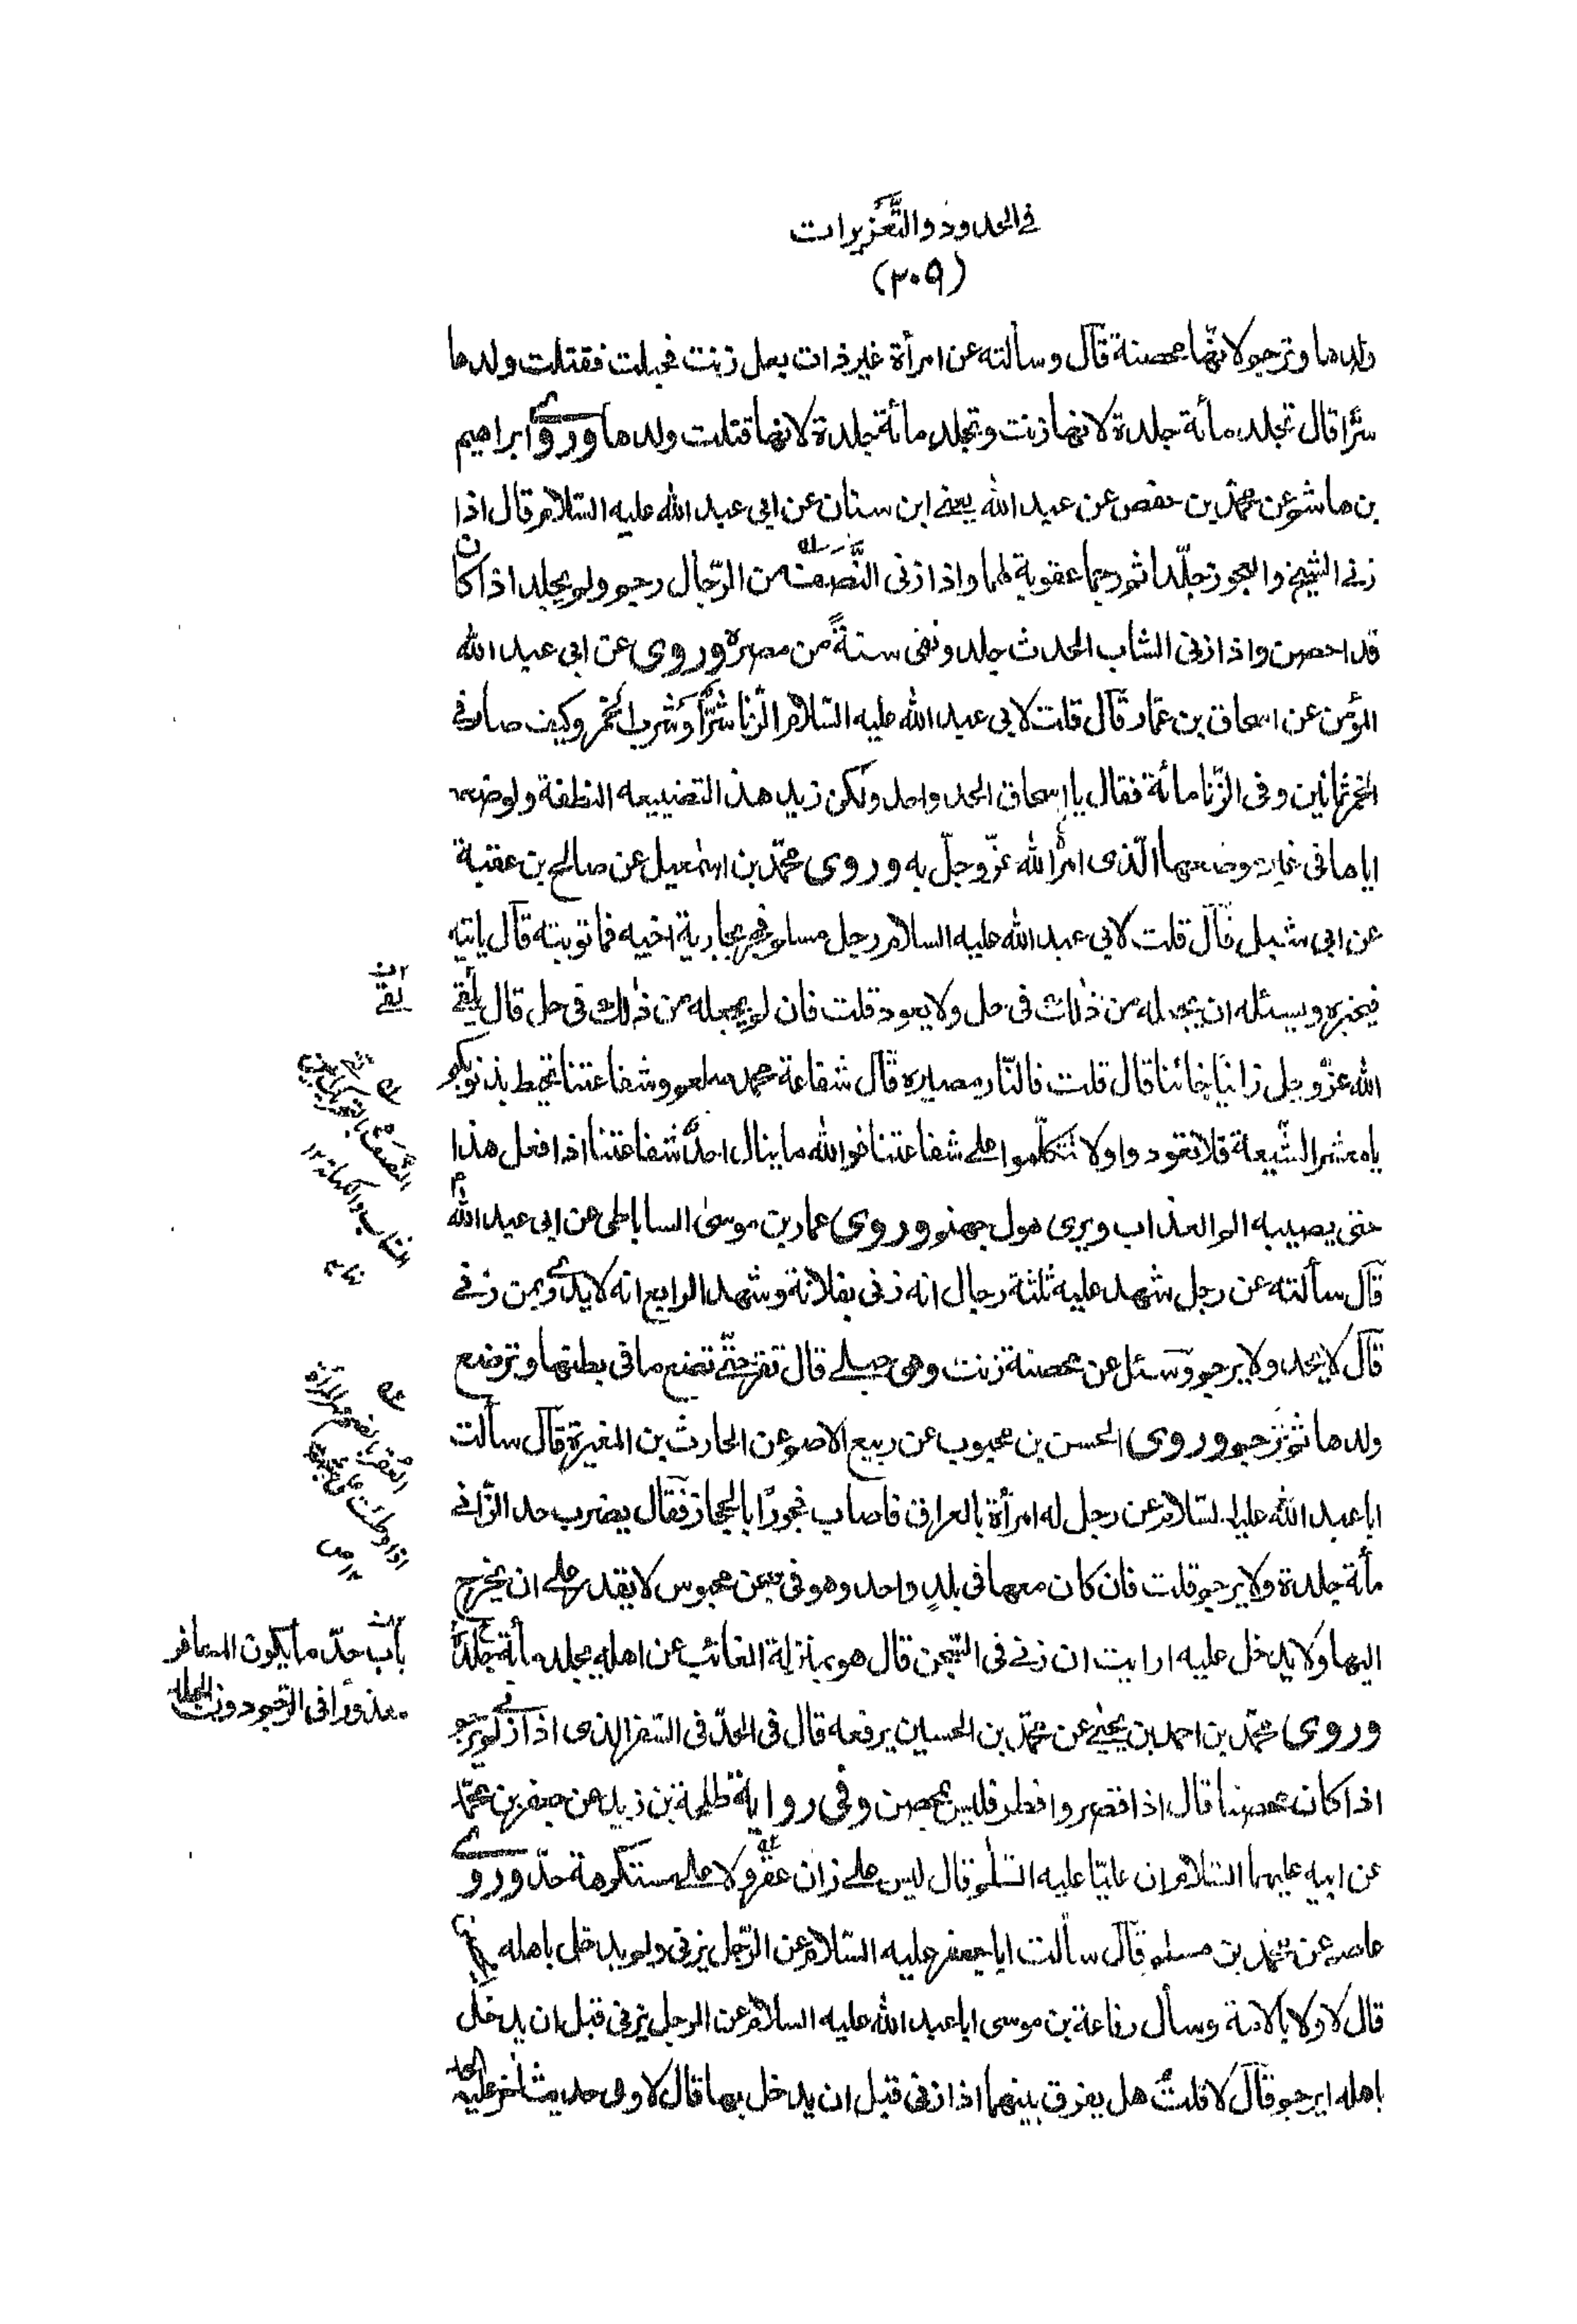 في الحدود والتعزيرات
(٣٠٩)
ولدها وترجم لانها محصنة قال وسالته عن امرأة غير ذات بعل زنت فحبلت فقتلت ولدها
سرّا قال تجلد مأئة جلدة لانها زنت وتجلد مائة جلدة لانها قتلت ولدها وروى ابراهيم
بن هاشم عن محمّد بن حفص عن عبد الله يعنى ابن سنان عن ابى عبد الله عليه السّلام قال اذا
زنى الشيخ والعجوز جلّدا ثم رجما عقوبة لهما واذا زنى النَّصَف من الرّجال رجم ولم يجلد اذا كان
قد احصن واذا زنى الشاب الحدث جلد ونفى سنةً من مصره وروى عن ابى عبد الله
المؤمن عن اسحاق بن عمّار قال قلت لابى عبد الله عليه السّلام الزّنا شرٌّ او شرب الخمر وكيف صار فى
الخمر ثمانين وفى الزّنا مائة فقال يا اسحاق الحد واحد ولكن زيد هذا لتضييعه النطفة ولوضعه
اياها فى غير موضعها الّذى امر الله عزّ وجلّ به وروى محمّد بن اسمعيل عن صالح بن عقبة
عن ابى شبل قال قلت لابى عبد الله عليه السلام رجل مسلم فجر بجارية اخيه فما توبته قال ياتيه
فيخبره ويسئله ان يجعله من ذلك فى حل ولا يعود قلت فان لم يجعله من ذلك فى حل قال يلقى
الله عزّ وجل زانيًا خائنا قال قلت فالنّار مصيره قال شفاعة محمد صلعم وشفاعتنا تحيط بذنوبكم
يا معشر الشّيعة فلا تعودوا ولا تتكلّموا على شفاعتنا فوالله ما ينال احدٌ شفاعتنا اذا فعل هذا
حتى يصيبه الم العذاب ويرى هول جهنم وروى عمار بن موسى الساباطى عن ابى عبد الله ع
قال سألته عن رجل شهد عليه ثلثة رجال انه زنى بفلانة وشهد الرابع انه لا يدرى بمن زنى
قال لا يحد ولا يرجم وسئل عن محصنة زنت وهى حبلى قال تقر حتّى تضع ما فى بطنها وترضع
ولدها ثم ترجم وروى الحسن بن محبوب عن ربيع الاصم عن الحارث بن المغيرة قال سألت
ابا عبد الله عليه السّلام عن رجل له امرأة بالعراق فاصاب فجورًا بالحجاز فقال يضرب حد الزّانى
مأئة جلدة ولا يرجم قلت فان كان معها فى بلدٍ واحد وهو فى سجن محبوس لا يقدر على ان يخرج
اليها ولا يدخل عليه ارايت ان زنى فى السّجن قال هو بمنزلة الغائب عن اهله يجلد مأئة جلدة
وروى محمّد بن احمد بن يحيى عن محمّد بن الحسين يرفعه قال فى الحدّ فى السّفر الذى اذا زنى لم يرجم
اذا كان محصنا قال اذا قصر وافطر فليس بمحصن وفى رواية طلحة بن زيد عن جعفر بن محمّد
عن ابيه عليهما السّلام ان عليّا عليه السّلم قال ليس على زان عقر ولا على مستكرهة حدّ وروى
عاصم عن محمّد بن مسلم قال سألت ابا جعفر عليه السّلام عن الرّجل يزنى ولم يدخل باهله
قال لا ولا بالامة وسأل رفاعة بن موسى ابا عبد الله عليه السلام عن الرجل يزنى قبل ان يدخل
باهله ايرجم قال لا قلت هل يفرق بينهما اذا زنى قبل ان يدخل بها قال لا وفى حديث اخر عليه الحد
باب حدّ ما يكون المسافر
معذورًا فى الرّجم دون الجلد